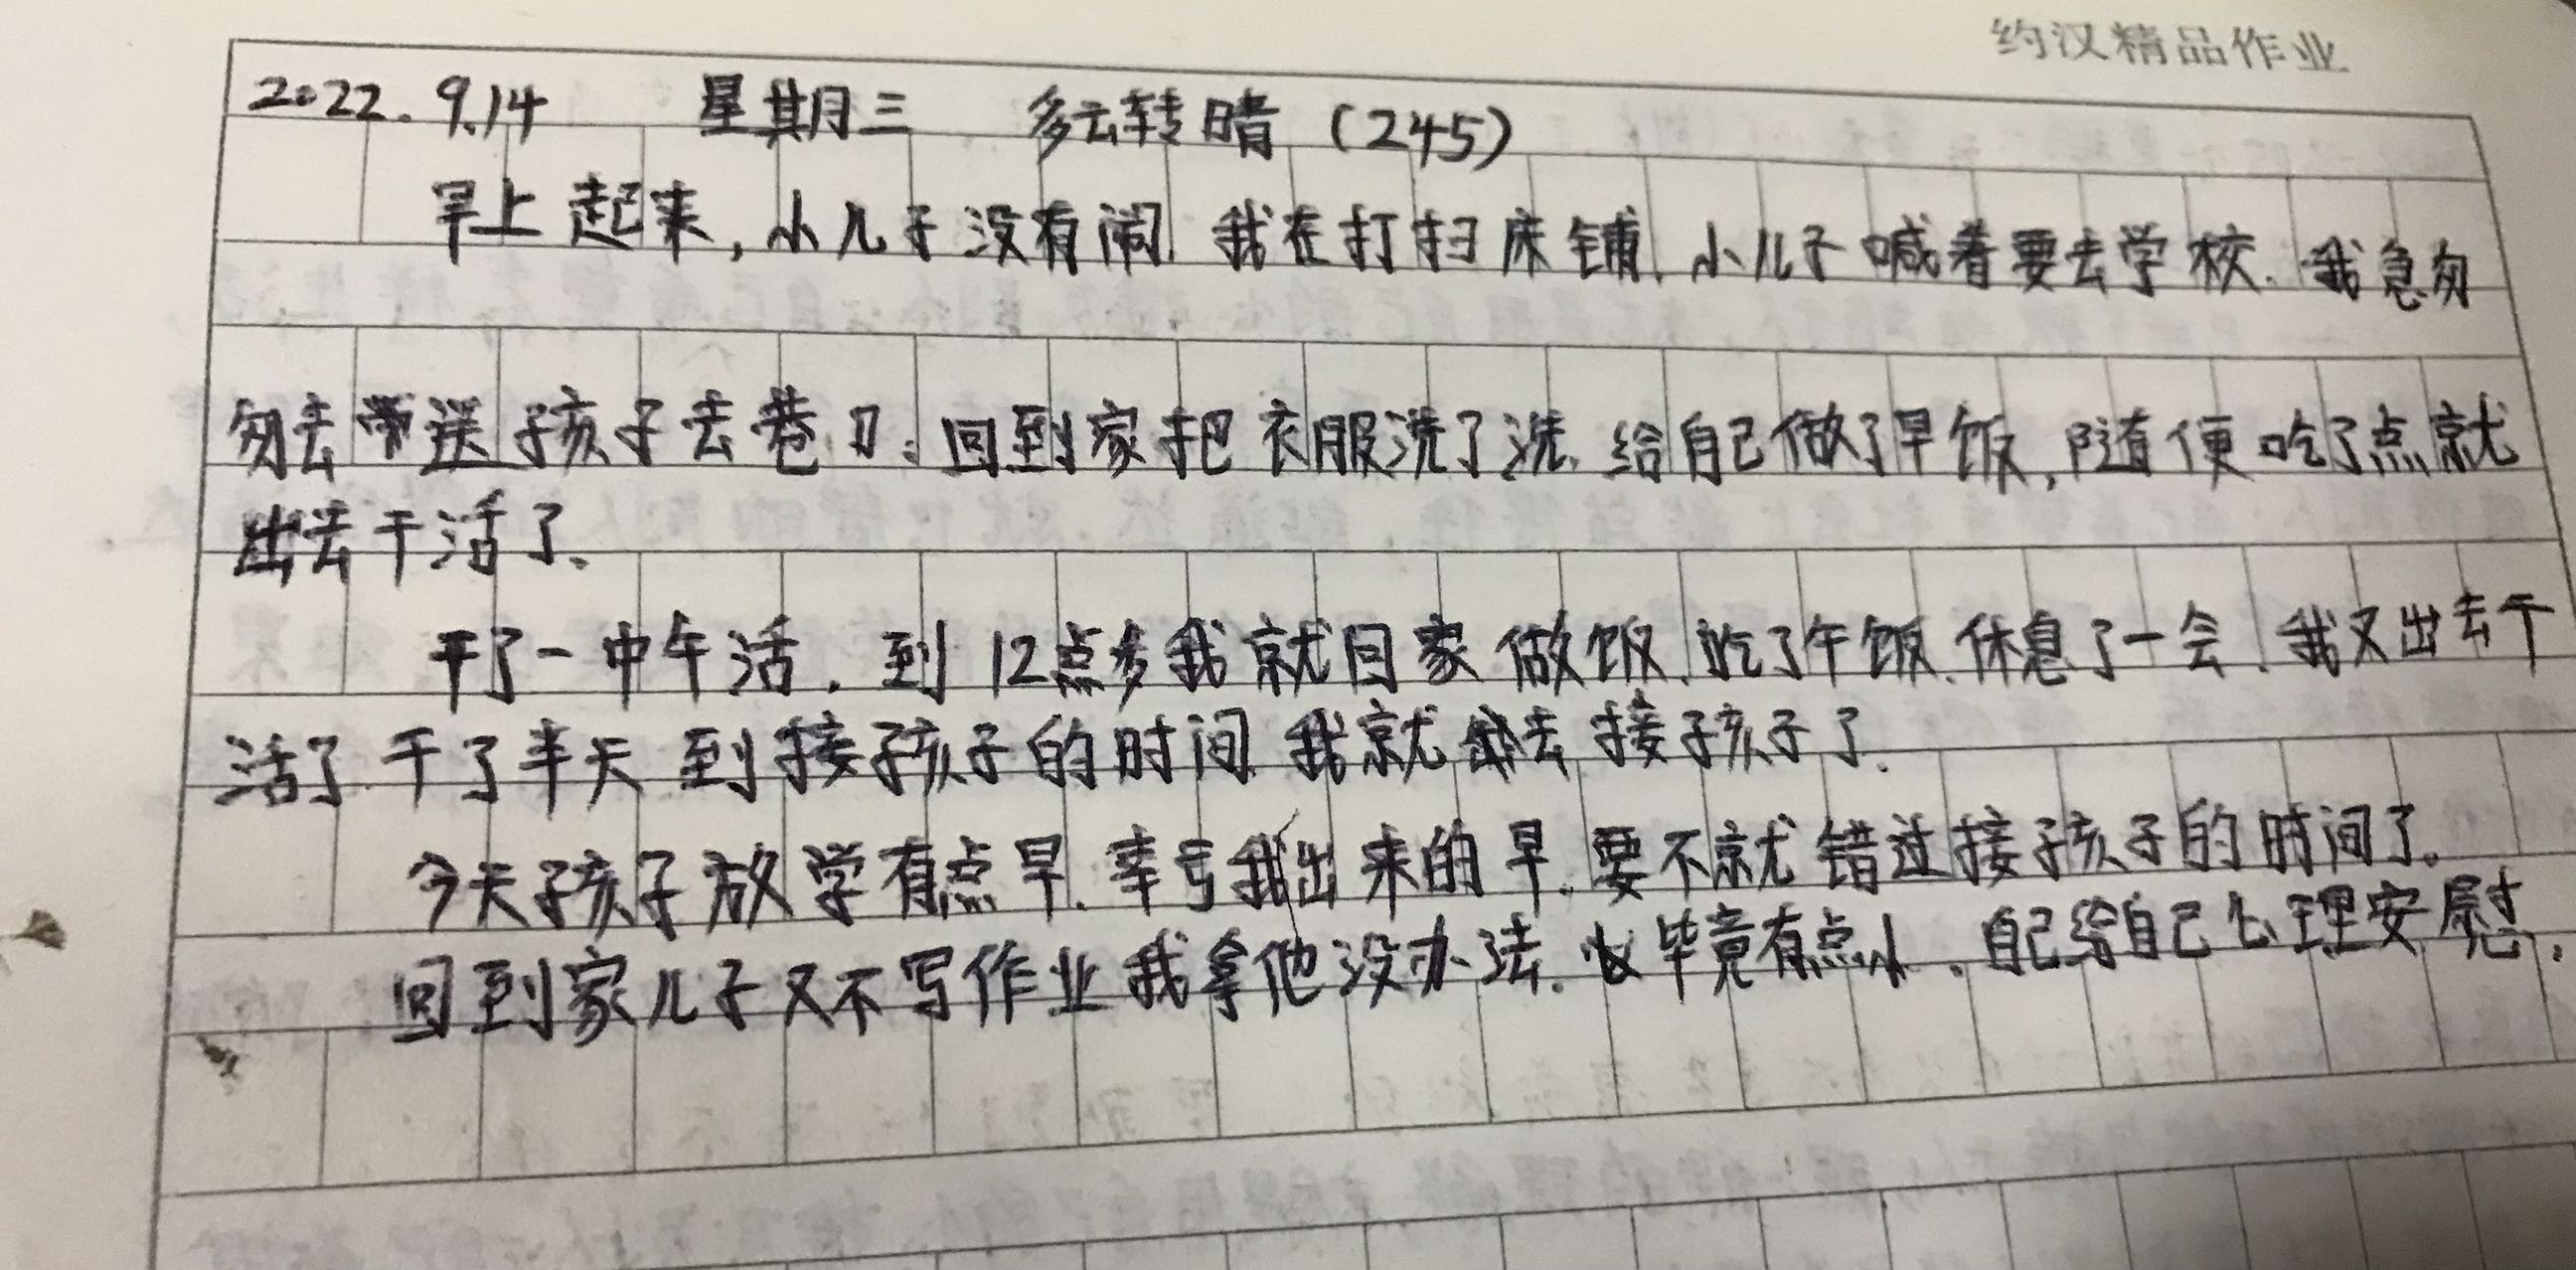 约汉精品作业
2022.9.14 星期三 多云转晴（245）
早上起来，小儿子没有闹.我在打扫床铺.小儿子喊着要去学校.我急匆
匆去带送孩子去巷口.回到家把衣服洗了洗.给自己做了早饭,随便吃了点就
出去干活了.
干了一中午活.到12点多我就回家做饭.吃了午饭.休息了一会.我又出去干
活了 干了半天 到接孩子的时间.我就去接孩子了.
今天孩子放学有点早.幸亏我出来的早.要不就错过接孩子的时间了.
回到家儿子又不写作业 我拿他没办法.毕竟有点小.自己给自己心理安慰.